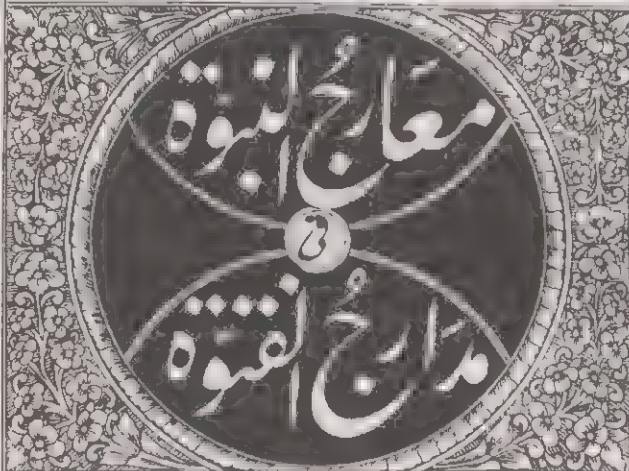 مَعَارجُ النبوّة
في
مَدَارجُ الفتوّة